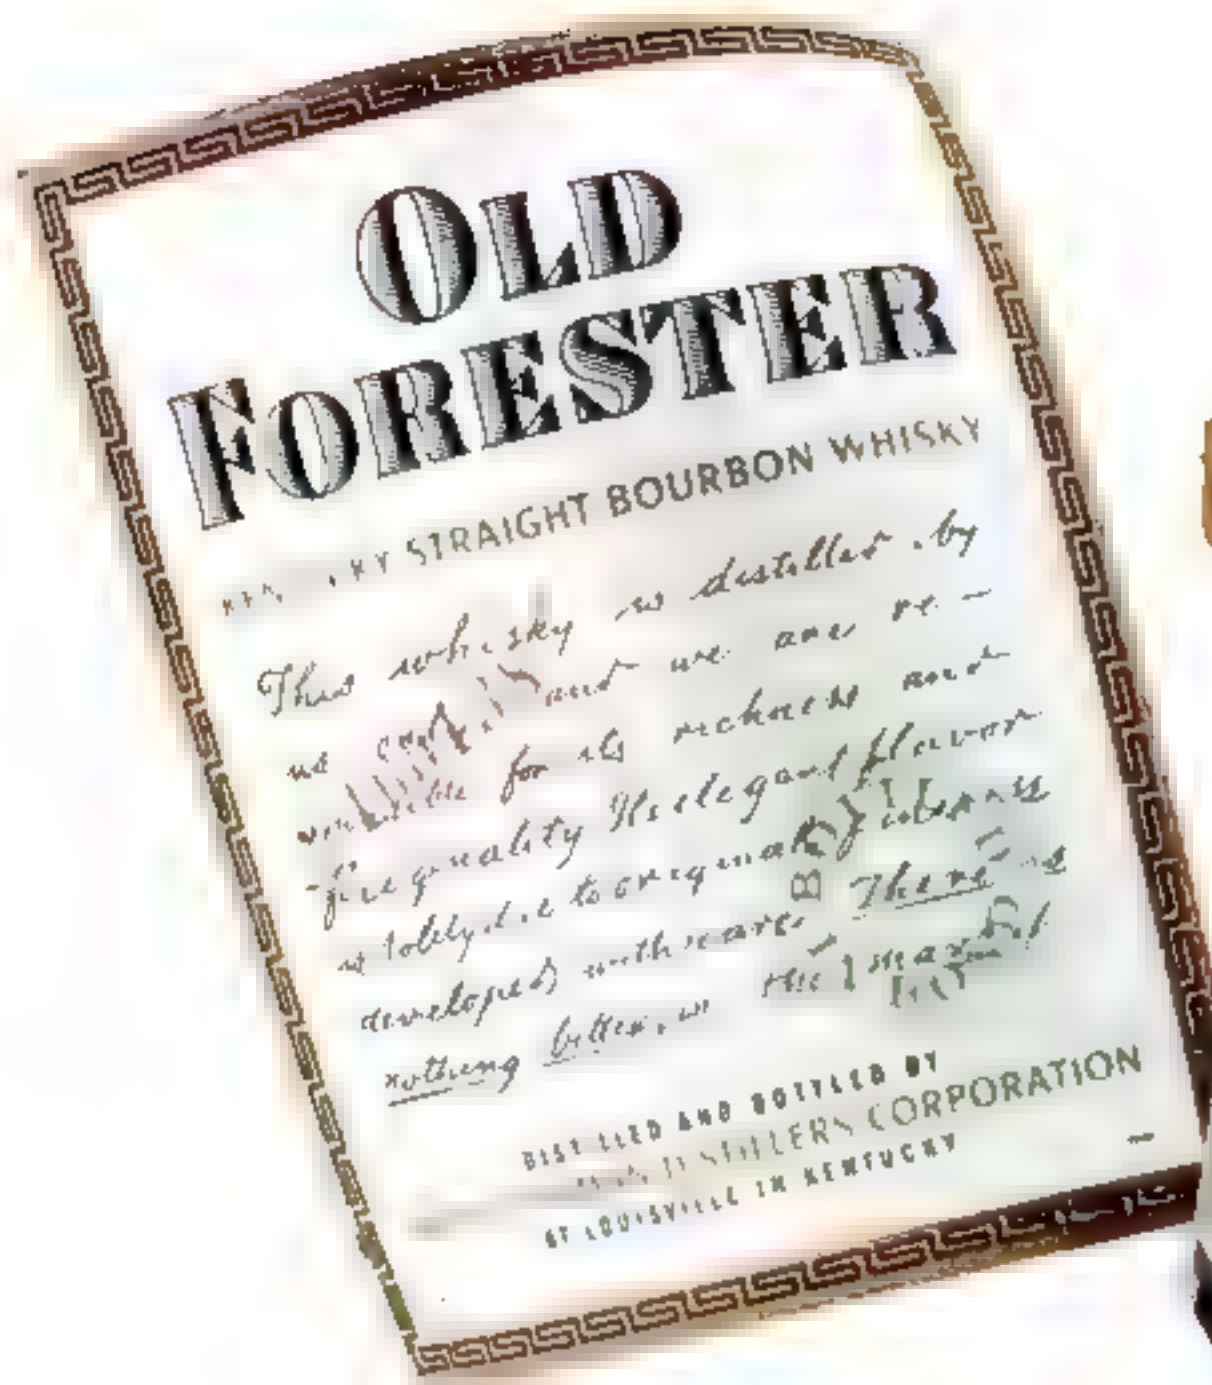 OLD
FORESTER
STRAIGHT BOURBON WHISKY
This whisky is distilled by
us and we are re-
for its richness and
fine quality Its elegant flavor
is solely due to original
developed with care There is
nothing better in the market
DISTILLED AND BOTTLED BY
DISTILLERS CORPORATION
AT LOUISVILLE IN KENTUCKY